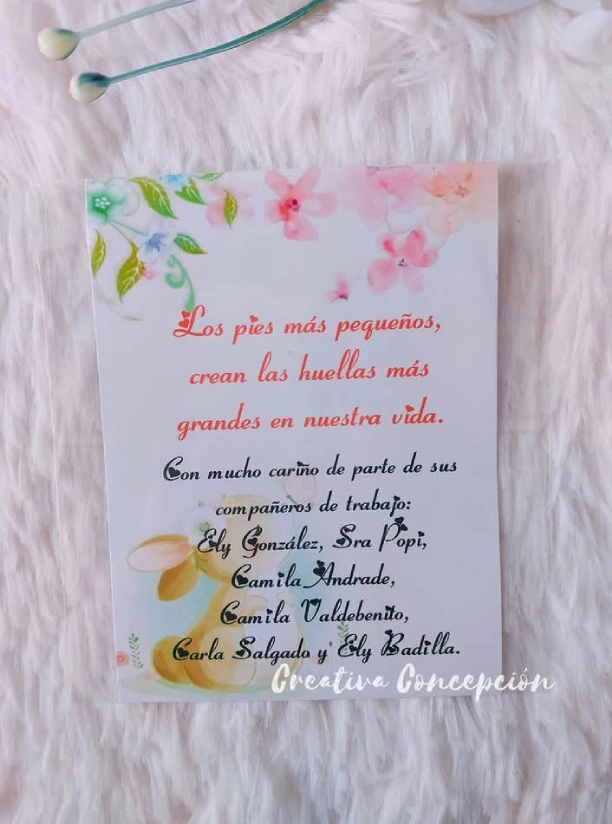 Los pies más pequeños,
crean las huellas más
grandes en nuestra vida.
Con mucho cariño de parte de sus
compañeros de trabajo:
Ely González, Sra Popi,
Camila Andrade,
Camila Valdebenito,
Carla Salgado y Ely Badilla.
Creativa Concepción